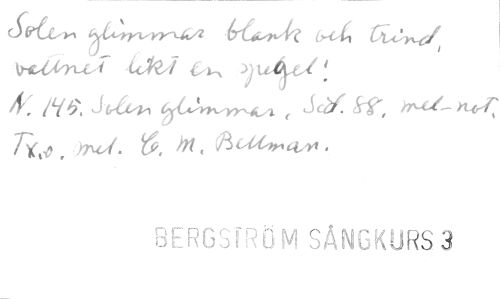 Solen glimmar blank och trind,
vattnet likt en spegel!
N. 145. Solen glimmar, Sid. 88, mel-not.
Tx. o. mel. C. M. Bellman.
BERGSTRÖM SÅNGKURS 3